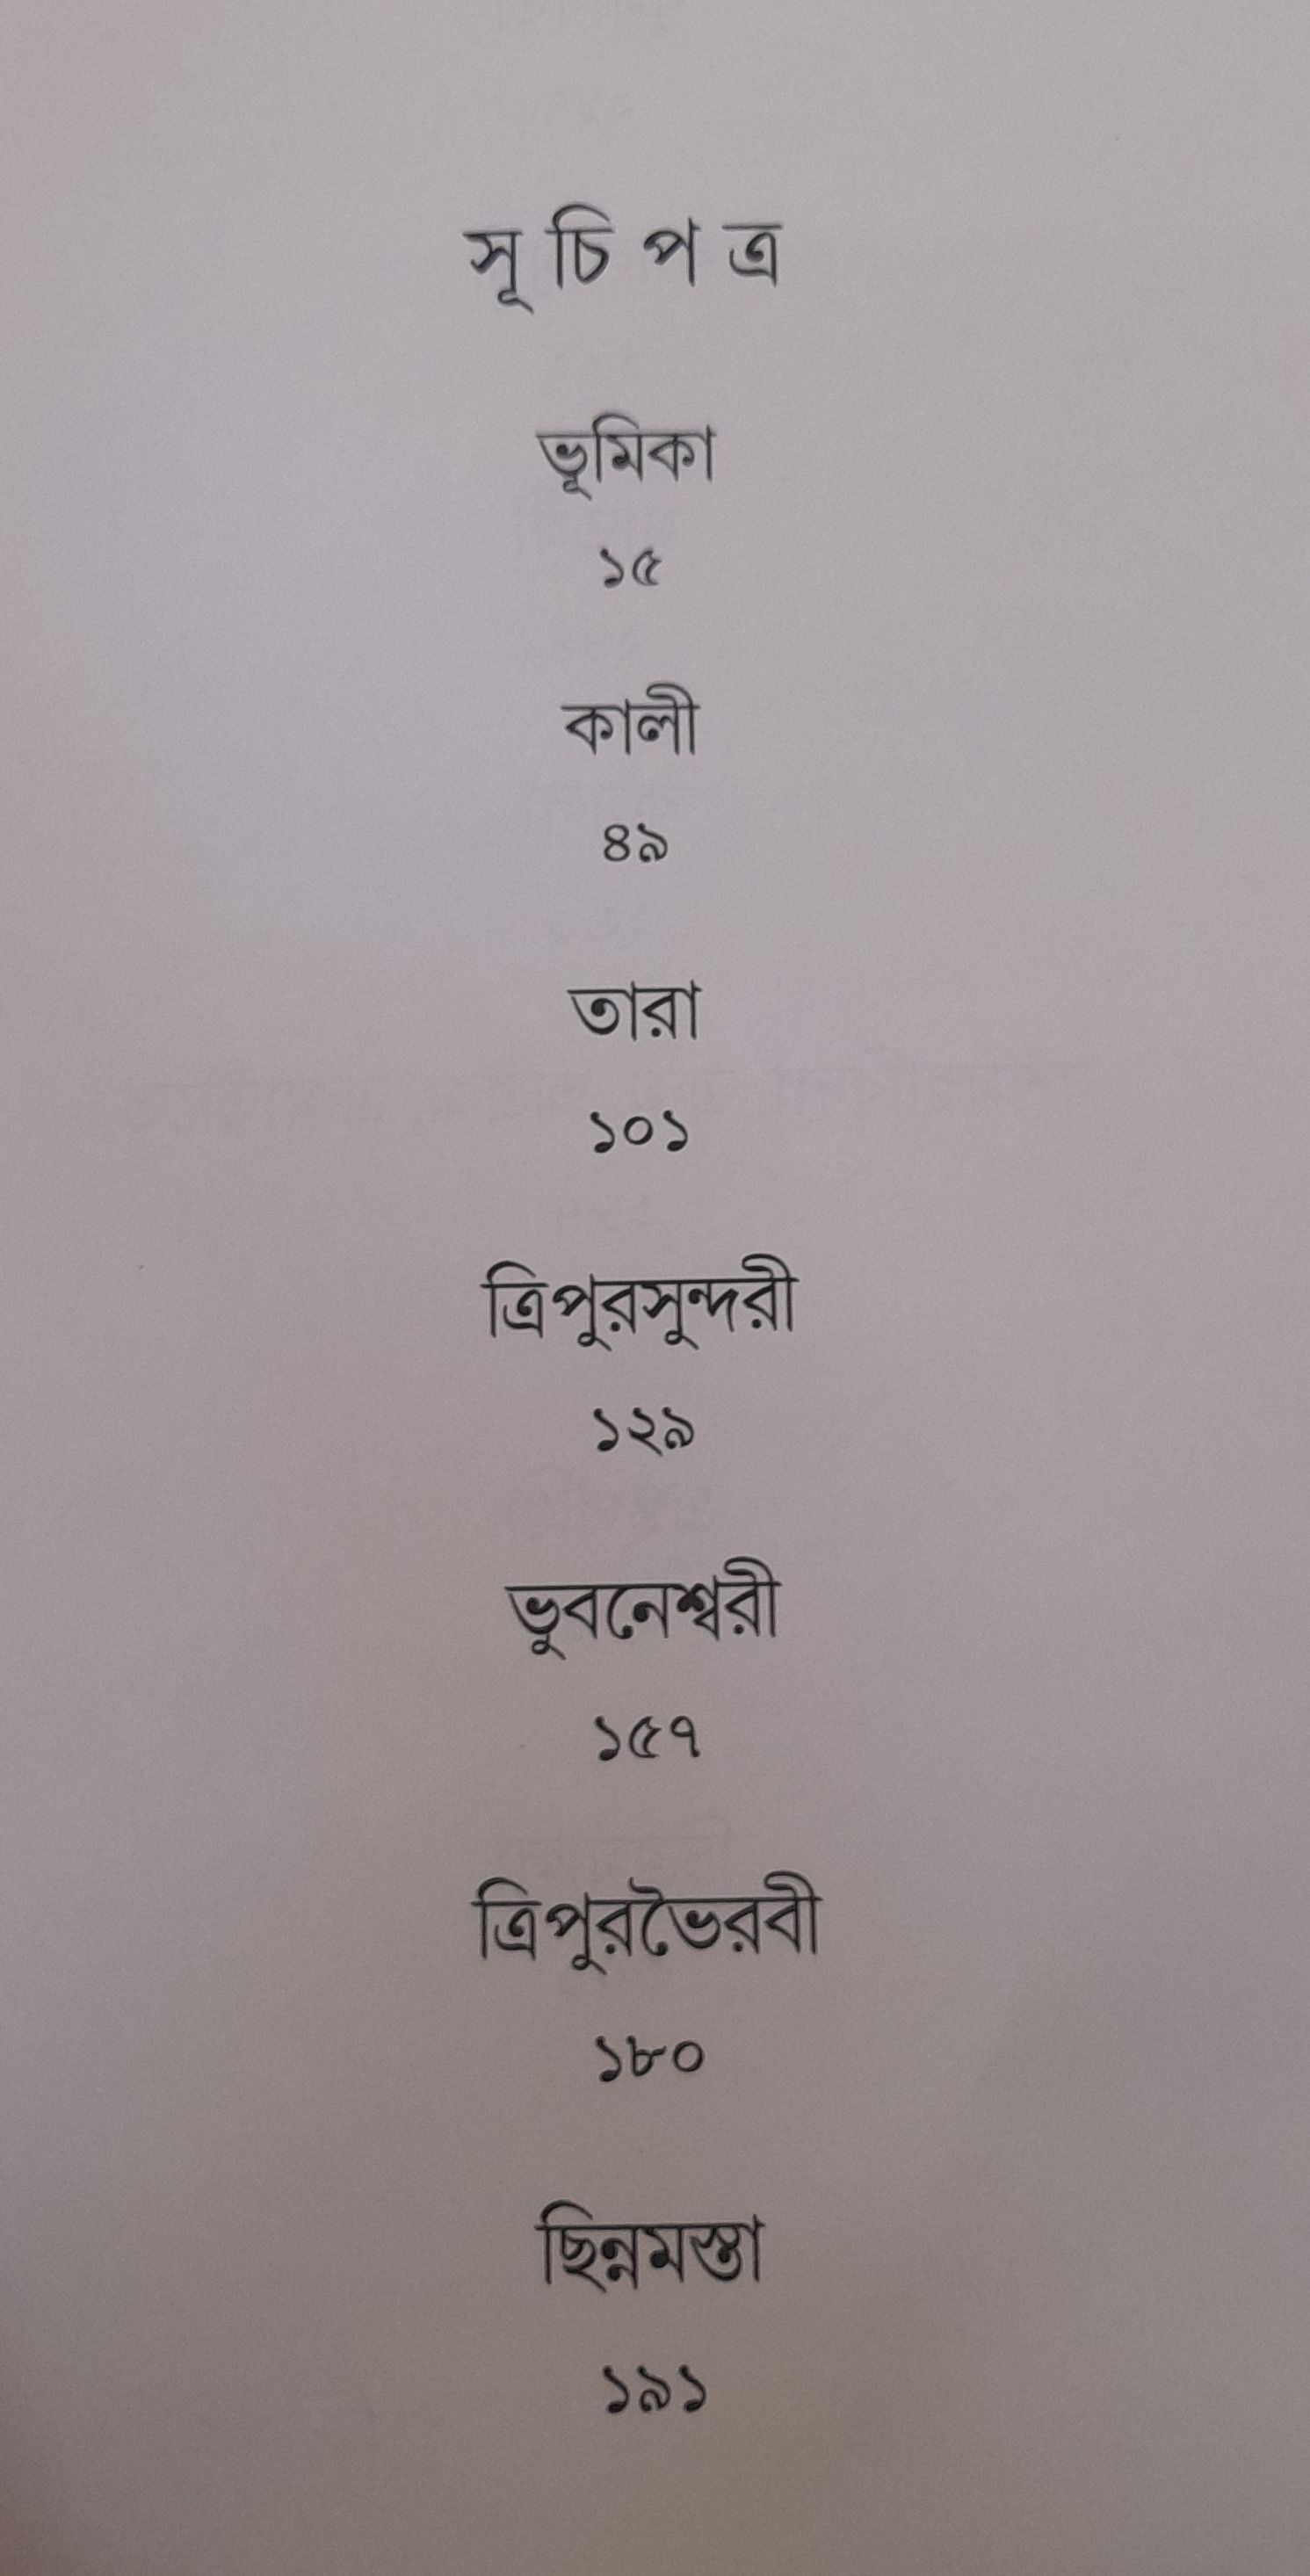 সূ চি প ত্র
ভূমিকা
১৫
কালী
৪৯
তারা
১০১
ত্রিপুরসুন্দরী
১২৯
ভুবনেশ্বরী
১৫৭
ত্রিপুরভৈরবী
১৮০
ছিন্নমস্তা
১৯১